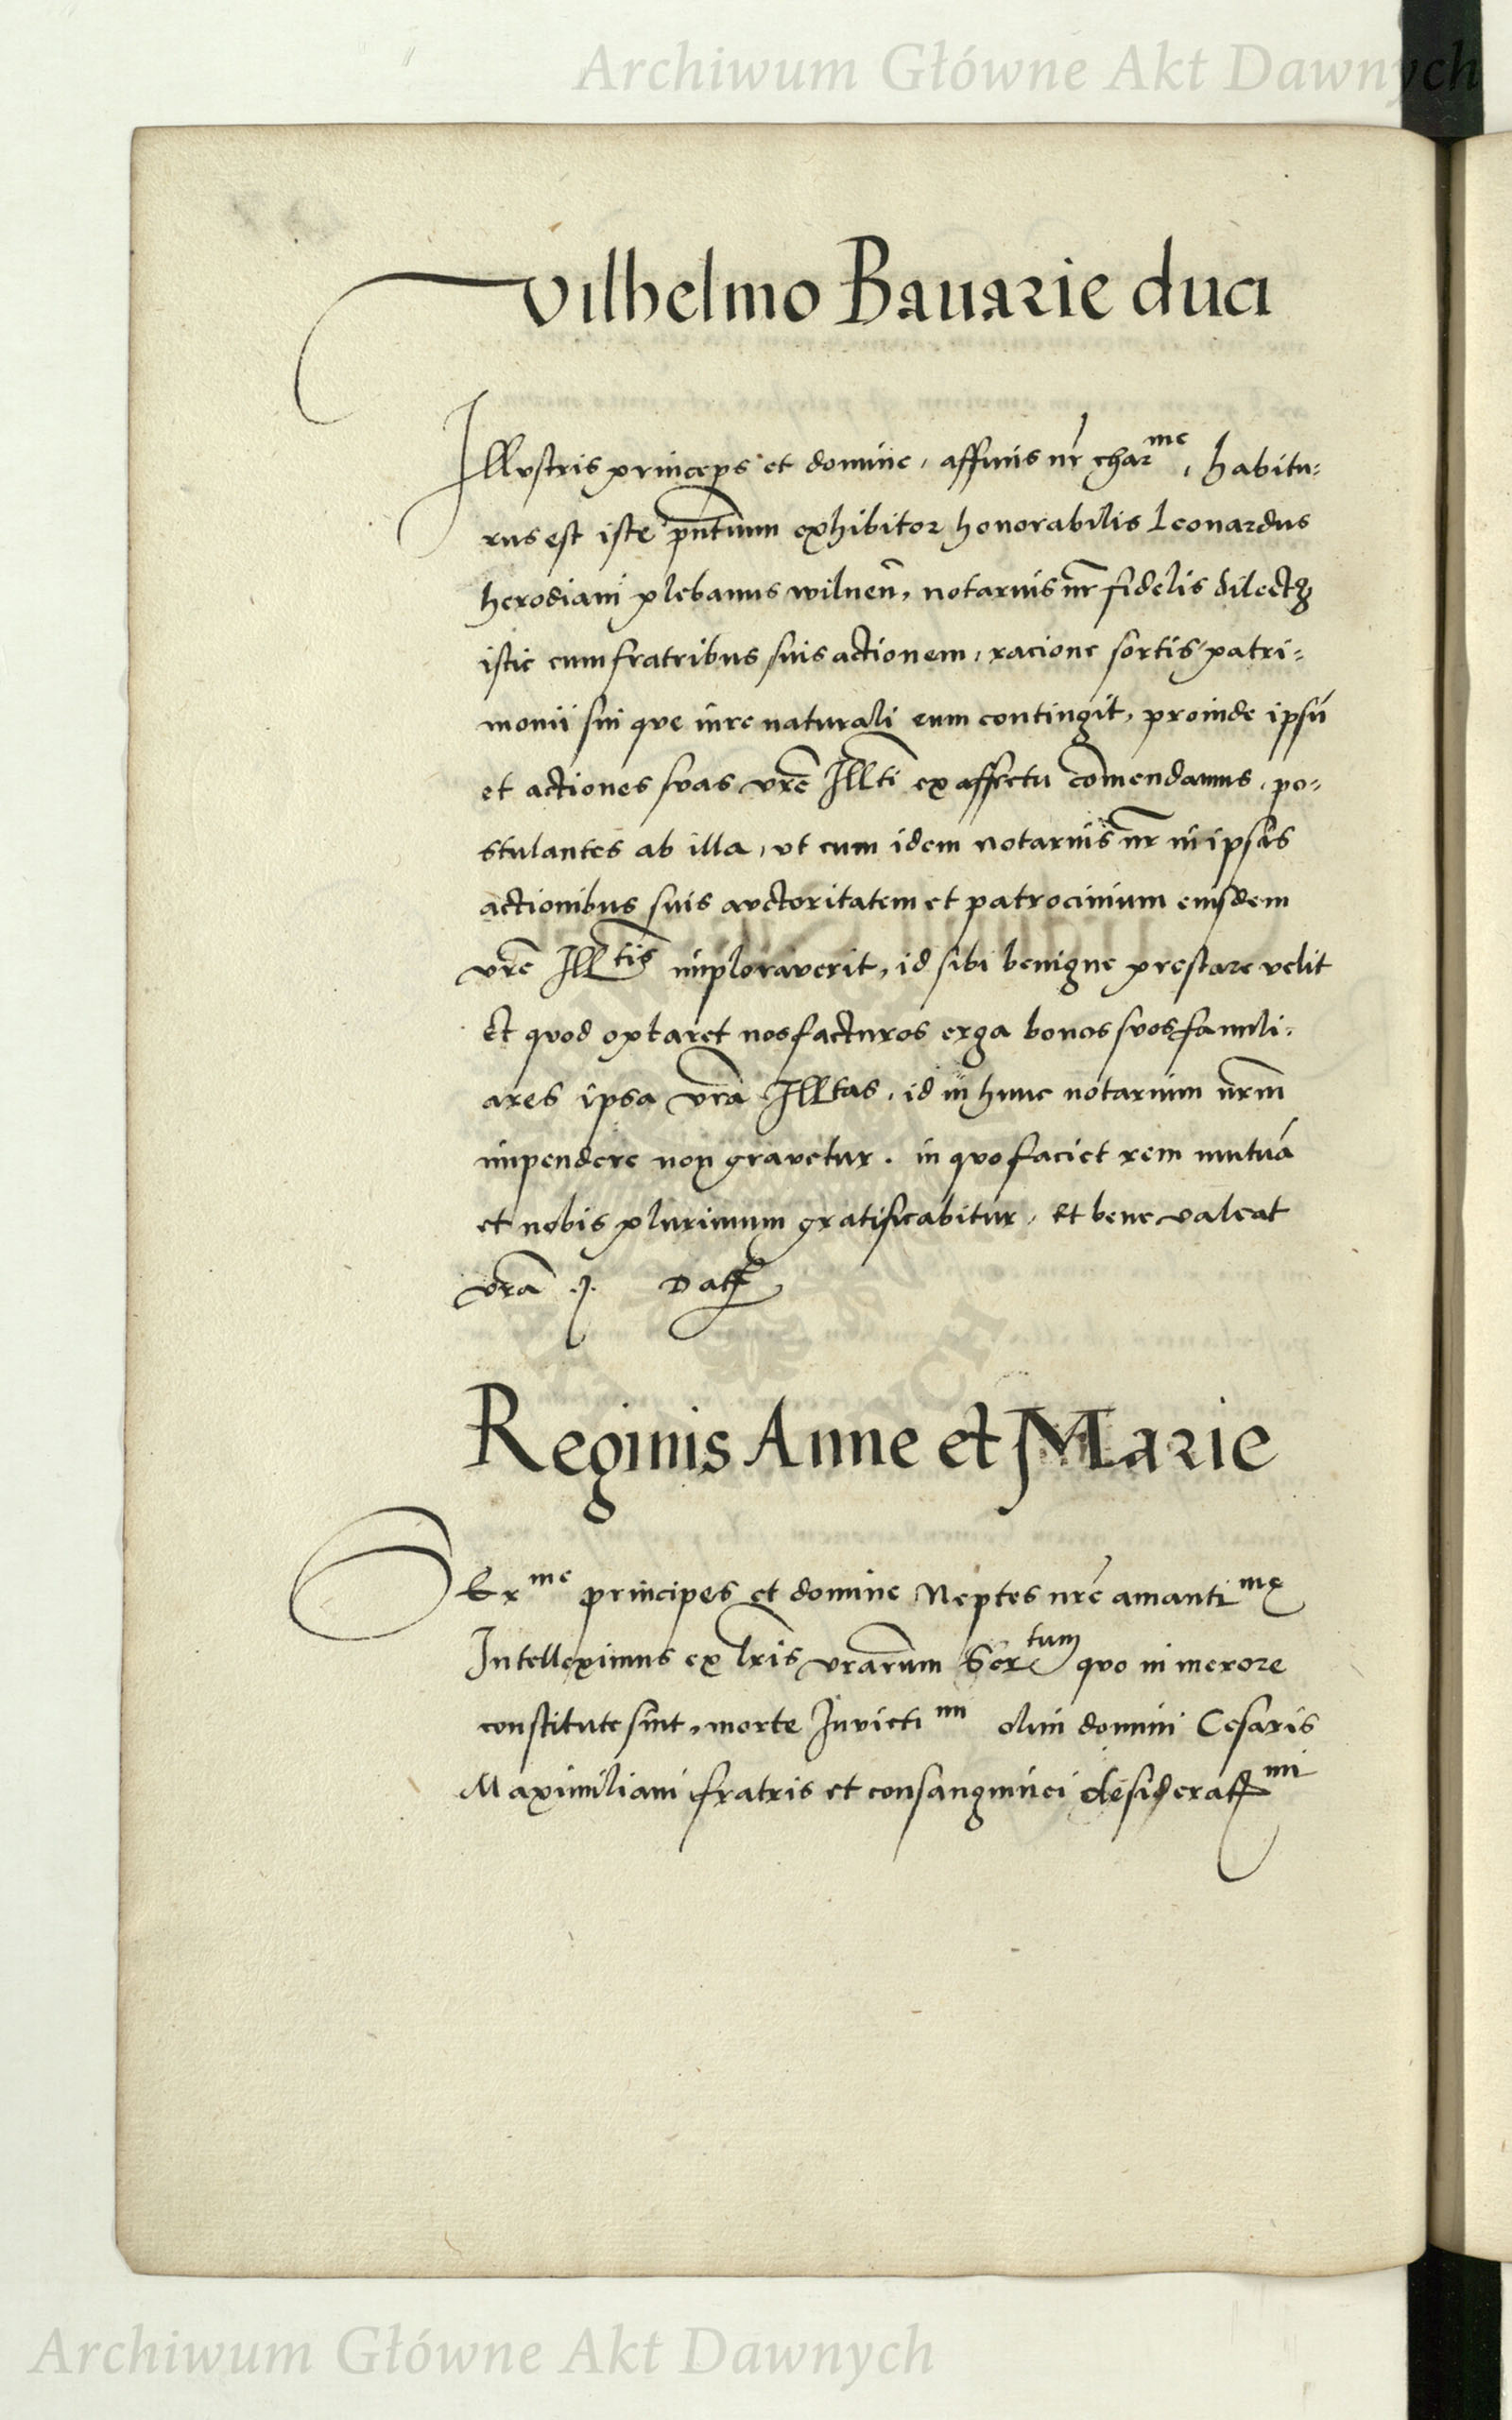 Archiwum Główne Akt Dawnych
Vilhelmo Bauarie duci
Illvstris princeps et domine, affinis nr̄ charme, habitu=
rus est iste pn̄tium exhibitor honorabilis Leonardus
herodiani plebanus wilnen̄, notarius nr̄ fidelis dilectꝰ
istic cum fratribus suis actionem, racione sortis patri=
monii sui qve iure naturali eum contingit, proinde ipsū
et actiones svas vrē Illti ex affectu cōmendamus, po=
stulantes ab illa, vt cum idem notarius nr̄ in ipsis
actionibus suis avctoritatem et patrocinium eiusdem
vrē Illtis imploraverit, id sibi benigne prestare velit
Et qvod optaret nos facturos erga bonos svos famili=
ares ipsa vrā Illtas, id in hunc notarium nrm̄
impendere non gravetur. in qvo faciet rem mutuā
et nobis plurimum gratificabitur, Et bene valeat
vrā .J. Datꝭ
Reginis Anne et Marie
SErme principes et domine Neptes nrē amantime
Intelleximus ex lrīs vrārum Sertum qvo in merore
constitute sint, morte Invictimi olim domini Cesaris
Maximiliani fratris et consanguinei desideratꝭmi
Archiwum Główne Akt Dawnych